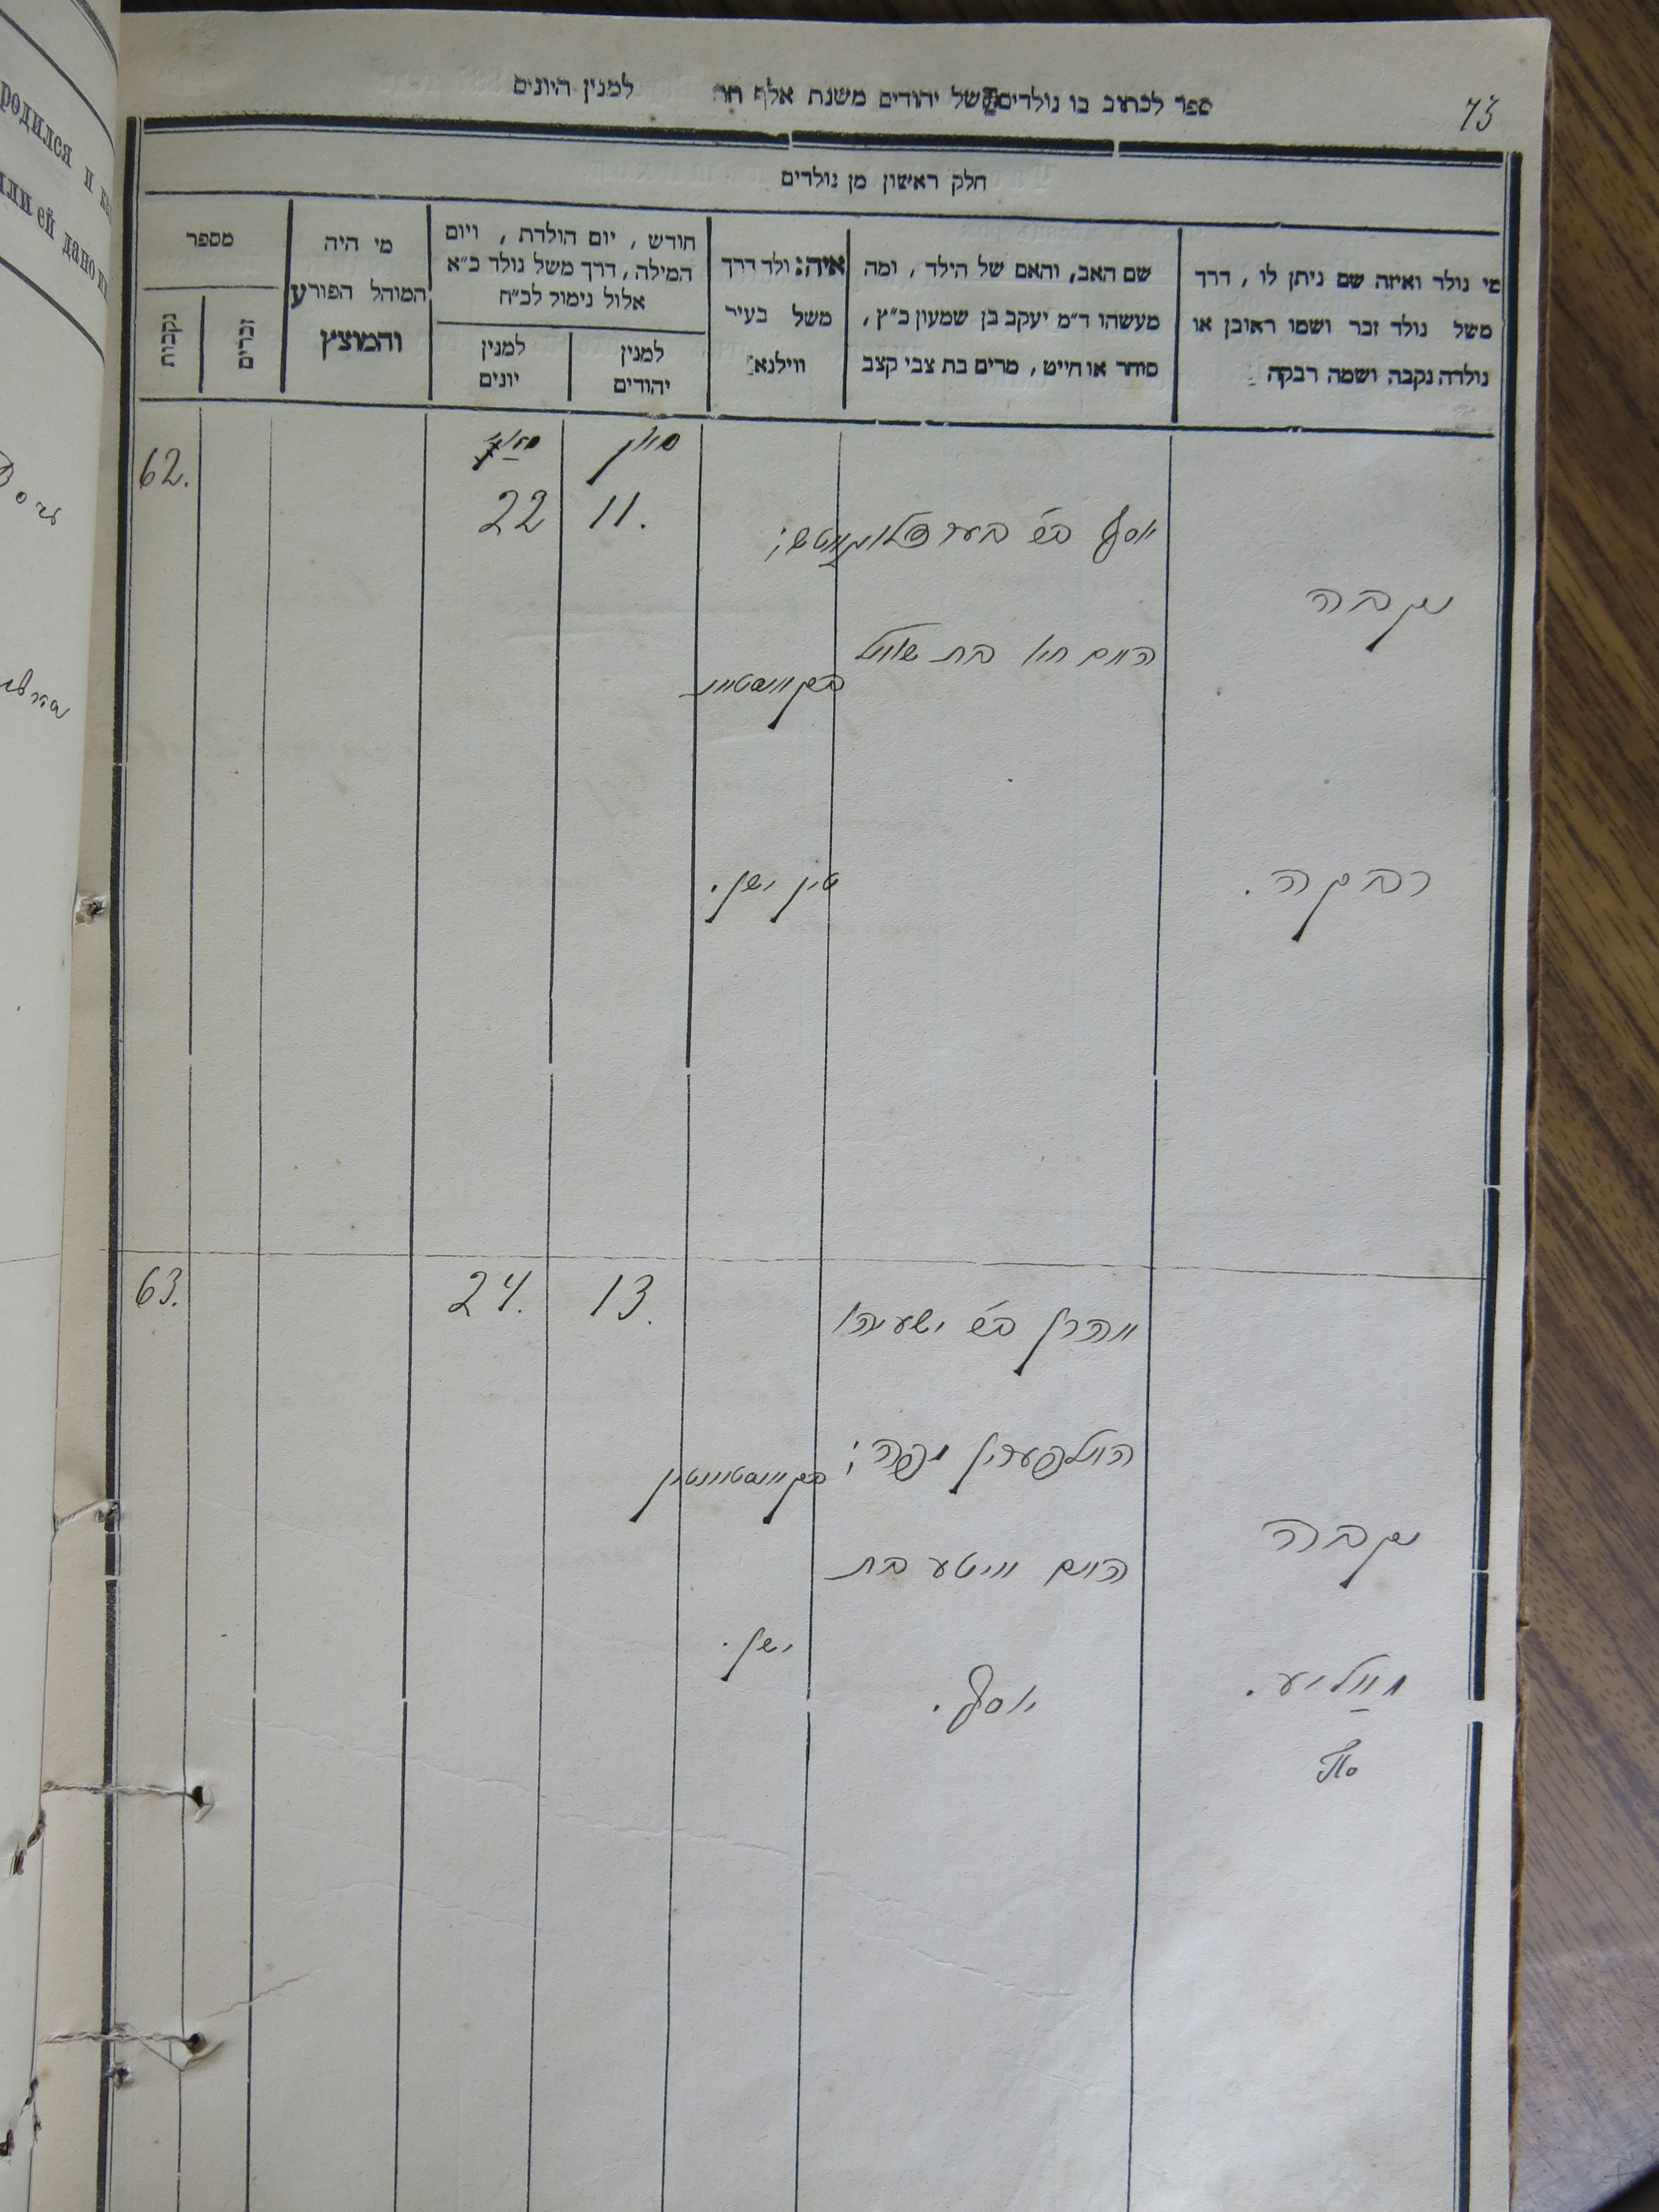 73
ספר לכתוב בו נולדים של יהודים משנת אלף תת למנין היונים
חלק ראשון מן נולדים
מי נולד ואיזה שם ניתן לו, דרך
משל נולד זכר ושמו ראובן או
נולדה נקבה ושמה רבקה
שם האב, והאם של הילד, ומה
מעשהו ד״מ יעקב בן שמעון כ״ץ,
סוחר או חייט, מרים בת צבי קצב
איה: ולד דרך
משל בעיר
ווילנא
חודש, יום הולדת, ויום
המילה, דרך משל נולד כ״א
אלול נימול לכ״ח
למנין
יהודים
למנין
יונים
מי היה
המוהל הפורע
והמוצץ
מספר
זכרים
נקבות
סיון
מאי
62.
22
11.
יוסף ב״ש בער
נקבה
האם חיה בת שאול
רבקה.
ישן.
63.
24.
13.
אהרן ב״ש ישעיהו
נקבה
האם איטע בת
ישן.
יוסף.
родился и
или ей дано
Дочь